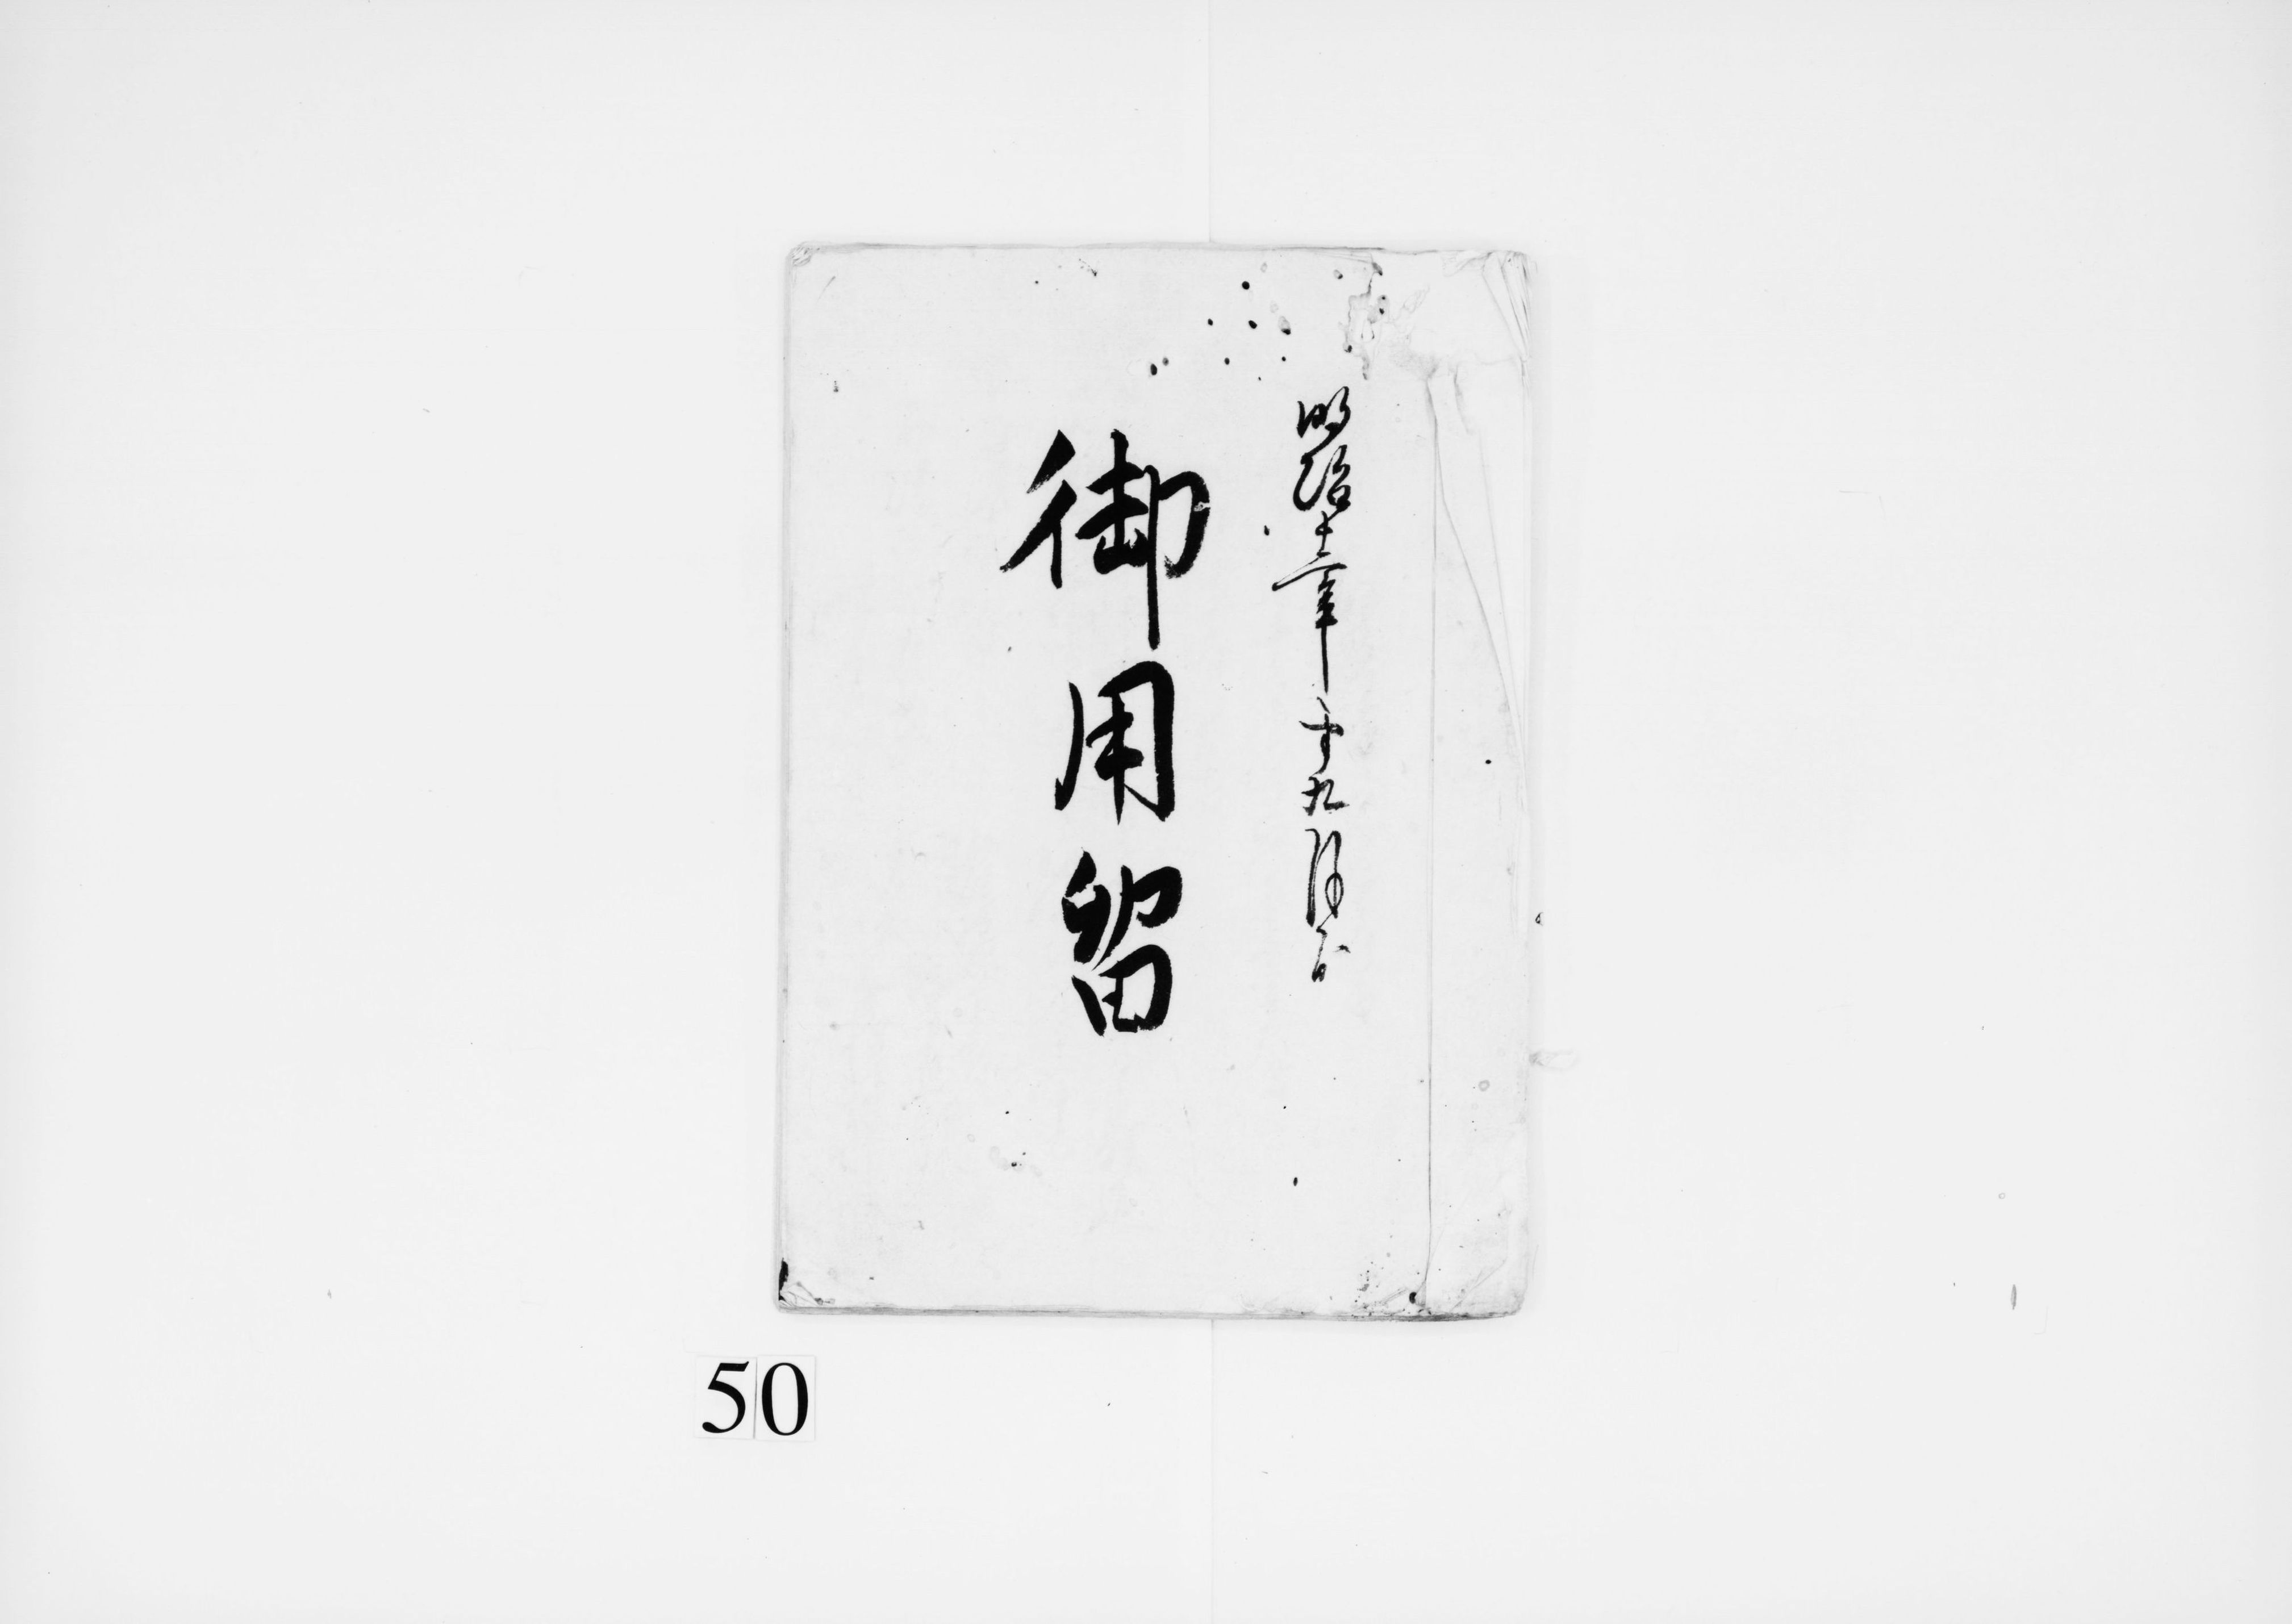 明治十二年 九月
御用留
50